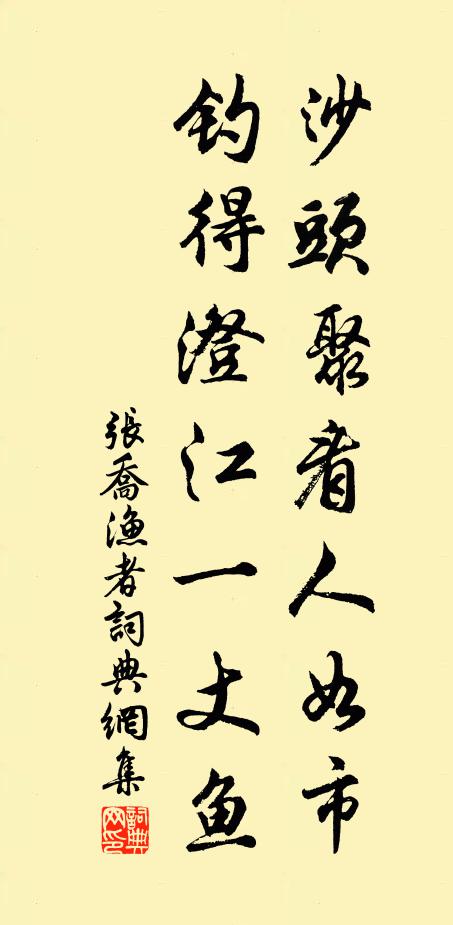 沙頭聚看人如市
釣得澄江一丈魚
張喬漁者詞典網集
詞典網印